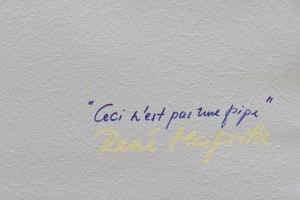 "Ceci n'est pas une pipe"
René Magritte